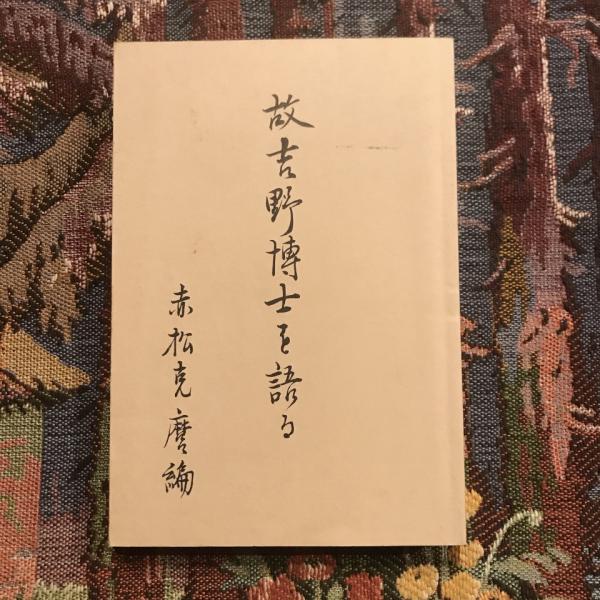 故吉野博士を語る
赤松克麿編